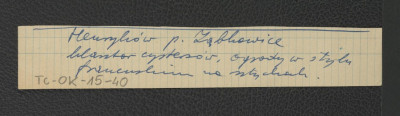 Henryków p. Ząbkowice
klasztor cystersów, ogrody w stylu
francuskim na sztychach.
Tc-OK-15-40